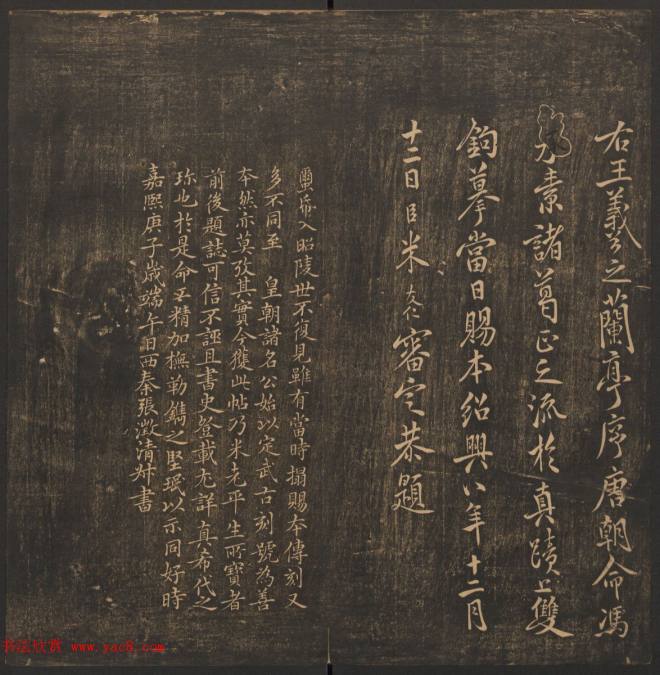 右王羲之蘭亭序唐朝命馮
承素諸葛正之流於真蹟上雙
鉤摹當日賜本紹興八年十二月
十二日臣米友仁審定恭題
璽帋入昭陵世不復見雖有當時搨賜本傳刻又
多不同至 皇朝諸名公始以定武古刻號為善
本然亦莫攷其實今獲此帖乃米老平生所寶者
前後題誌可信不誣且書史登載尤詳真希代之
珎也於是命工精加橅勒鐫之堅珉以示同好時
嘉熙庚子歲端午日西秦張澂清叔書
书法欣赏 www.yac8.com